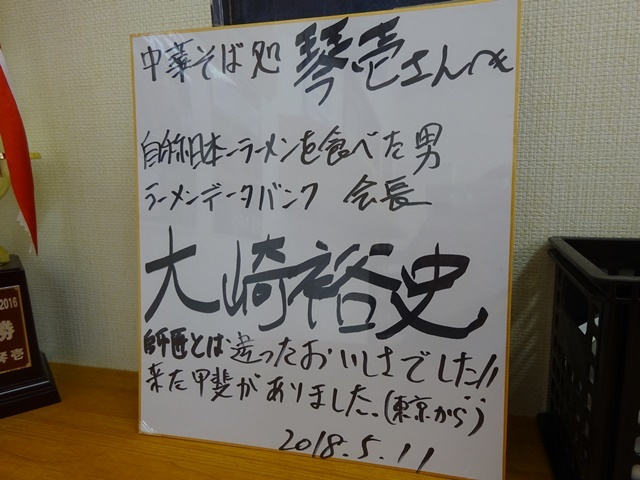 中華そば処 琴壱さん江
自称日本一ラーメンを食べた男
ラーメンデータバンク 会長
大崎裕史
師匠とは違ったおいしさでした!!
来た甲斐がありました。(東京から)
2018.5.11
2016
勝
琴壱